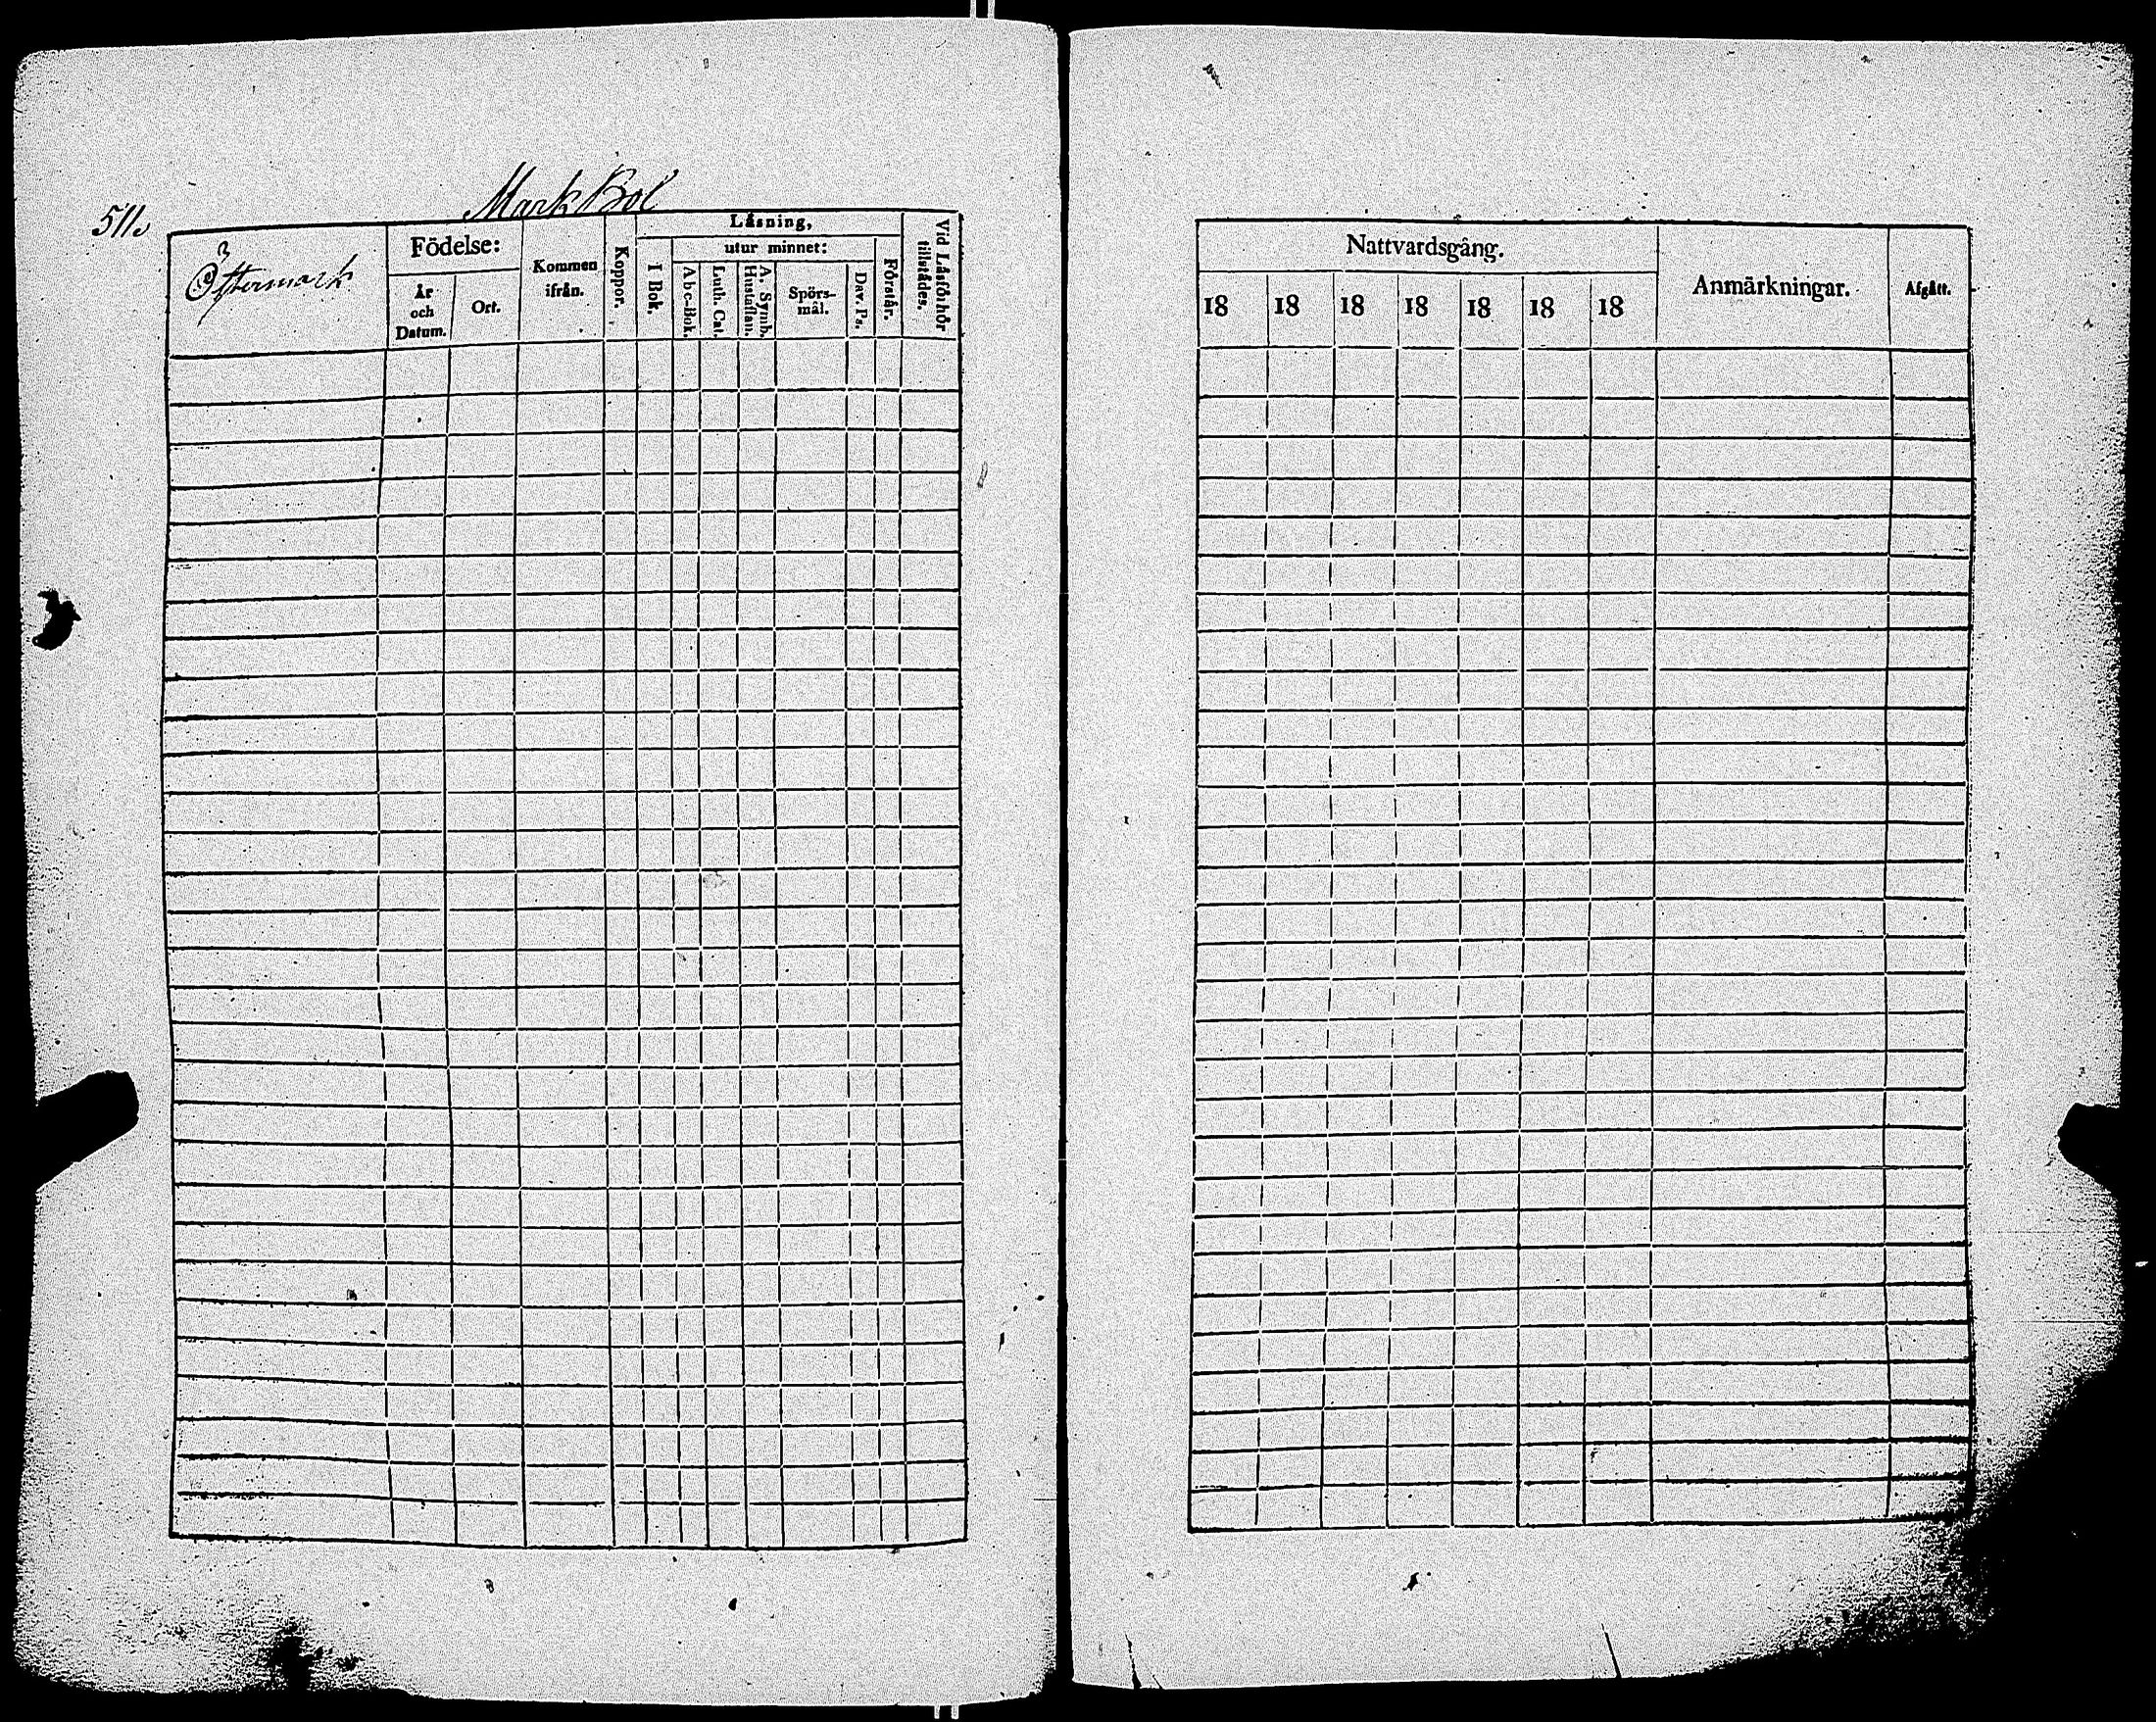 Mark Bol
511.
Östermark
Födelse:
År
och
Datum.
Ort.
Kommen
ifrån.
Koppor.
Läsning,
I Bok.
utur minnet:
Abc-Bok.
Luth. Cat.
A. Symb.
Hustaflan.
Spörs-
mål.
Dav. Ps.
Förstår.
Vid Läsförhör
tillstädes.
Nattvardsgång.
18 18 18 18 18 18 18
Anmärkningar.
Afgått.